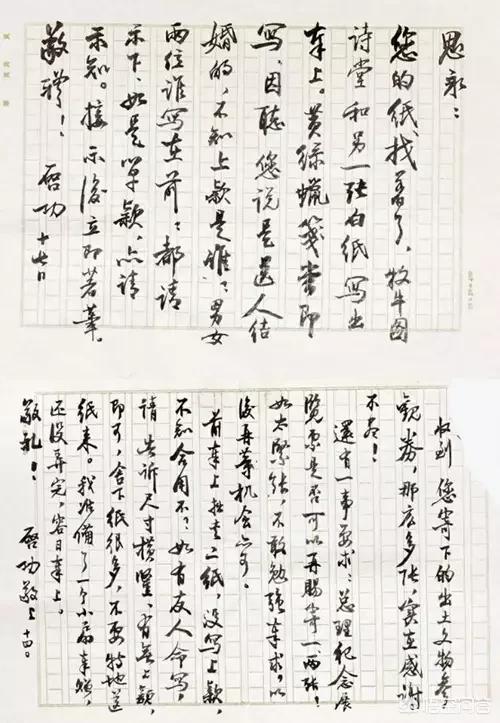 您的纸、找着了，牧牛图
诗堂和另一张白纸写出
奉上。黄绿蜡笺当即
写，因聽您说是送人结
婚的，不知上款是谁？男女
两位谁写在前？都请
示下、如是单款，亦请
示知。接示後立即著笔。
敬礼！
启功 十七日
收到您寄下的出土文物参
观券，那庅多张，实在感谢
不尽！
还有一事要求：总理纪念展
览票是否可以再赐寄一两张？
如太紧张，不敢勉强奉求，以
後再等机会亦可。
前奉上拙画二纸，没写上款，
不知合用不？如有友人命写，
请告诉尺寸横竖、有无上款，
即可，舍下纸很多，不要特地送
纸来。我准備了一个小扇奉赠，
还没弄完，容日奉上。
敬礼！
启功敬上 十四日